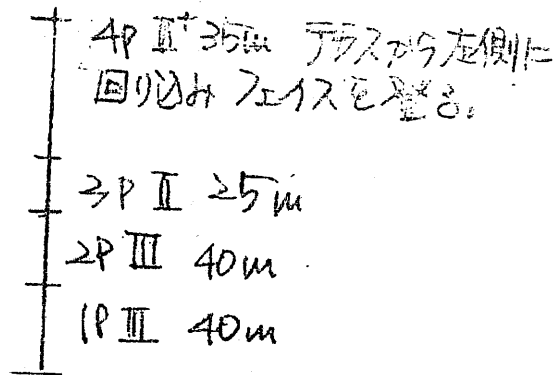 4P Ⅱ⁺ 35m テラスから左側に
回り込み フェイスを登る。
3P Ⅱ 25m
2P Ⅲ 40m
1P Ⅲ 40m